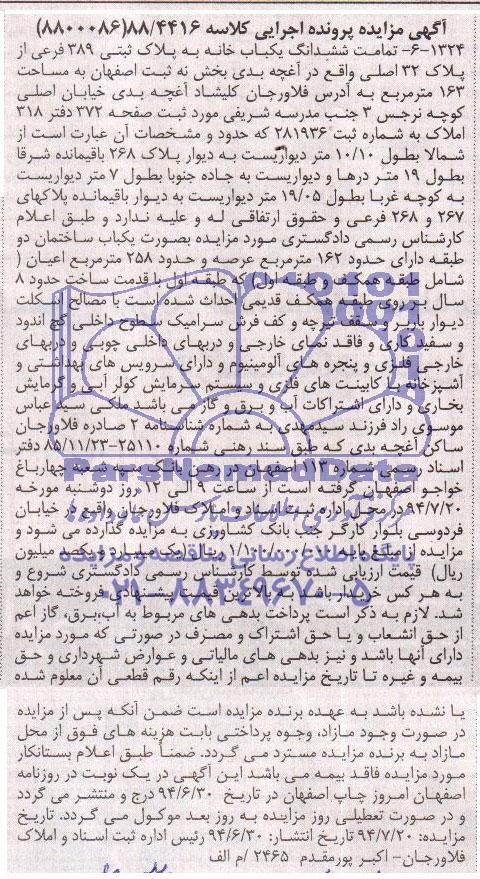 آگهی مزایده پرونده اجرایی کلاسه ۸۸/۴۴۱۶(۸۸۰۰۰۸۶)
۱۳۲۴-۶- تمامت ششدانگ یکباب خانه به پلاک ثبتی ۳۸۹ فرعی از
پلاک ۳۲ اصلی واقع در آغچه بدی بخش نه ثبت اصفهان به مساحت
۱۶۳ مترمربع به آدرس فلاورجان کلیشاد آغچه بدی خیابان اصلی
کوچه نرجس ۳ جنب مدرسه شریفی مورد ثبت صفحه ۳۷۲ دفتر ۳۱۸
املاک به شماره ثبت ۲۸۱۹۳۶ که حدود و مشخصات آن عبارت است از
شمالا بطول ۱۰/۱۰ متر دیواریست به دیوار پلاک ۲۶۸ باقیمانده شرقا
بطول ۱۹ متر درها و دیواریست به جاده جنوبا بطول ۷ متر دیواریست
به کوچه غربا بطول ۱۹/۰۵ متر دیواریست به دیوار باقیمانده پلاکهای
۲۶۷ و ۲۶۸ فرعی و حقوق ارتفاقی له و علیه ندارد و طبق اعلام
کارشناس رسمی دادگستری مورد مزایده بصورت یکباب ساختمان دو
طبقه دارای حدود ۱۶۲ مترمربع عرصه و حدود ۲۵۸ مترمربع اعیان (
شامل طبقه همکف و طبقه اول) که طبقه اول با قدمت ساخت حدود ۸
سال بر روی طبقه همکف قدیمی احداث شده است با مصالح اسکلت
دیوار باربر و سقف تیرچه و کف فرش سرامیک سطوح داخلی گچ اندود
و سفید کاری و فاقد نمای خارجی و دربهای داخلی چوبی و دربهای
خارجی فلزی و پنجره های آلومینیوم و دارای سرویس های بهداشتی و
آشپزخانه با کابینت های فلزی و سیستم سرمایش کولر آبی و گرمایش
بخاری و دارای اشتراکات آب و برق و گاز می باشد ملکی سید عباس
موسوی راد فرزند سیدمهدی به شماره شناسنامه ۲ صادره فلاورجان
ساکن آغچه بدی که طبق سند رهنی شماره ۲۵۱۱۰-۸۵/۱۱/۲۳ دفتر
اسناد رسمی شماره ۱۱۳ اصفهان در رهن بانک سپه شعبه چهارباغ
خواجو اصفهان قرار گرفته است از ساعت ۹ الی ۱۲ روز دوشنبه مورخه
۹۴/۷/۲۰ در محل اداره ثبت اسناد و املاک فلاورجان واقع در خیابان
فردوسی بلوار کارگر جنب بانک کشاورزی به مزایده گذارده می شود و
مزایده از مبلغ پایه ۱/۱۰۰/۰۰۰/۰۰۰ ریال (یک میلیارد و یکصد میلیون
ریال) قیمت ارزیابی شده توسط کارشناس رسمی دادگستری شروع و
به هر کس خریدار باشد به بالاترین قیمت پیشنهادی فروخته خواهد
شد. لازم به ذکر است پرداخت بدهی های مربوط به آب،برق، گاز اعم
از حق انشعاب و یا حق اشتراک و مصرف در صورتی که مورد مزایده
دارای آنها باشد و نیز بدهی های مالیاتی و عوارض شهرداری و حق
بیمه و غیره تا تاریخ مزایده اعم از اینکه رقم قطعی آن معلوم شده
یا نشده باشد به عهده برنده مزایده است ضمن آنکه پس از مزایده
در صورت وجود مازاد، وجوه پرداختی بابت هزینه های فوق از محل
مازاد به برنده مزایده مسترد می گردد. ضمناً طبق اعلام بستانکار
مورد مزایده فاقد بیمه می باشد این آگهی در یک نوبت در روزنامه
اصفهان امروز چاپ اصفهان در تاریخ ۹۴/۶/۳۰ درج و منتشر می گردد
و در صورت تعطیلی روز مزایده به روز بعد موکول می گردد. تاریخ
مزایده: ۹۴/۷/۲۰ تاریخ انتشار: ۹۴/۶/۳۰ رئیس اداره ثبت اسناد و املاک
فلاورجان- اکبر پورمقدم ۲۴۶۵ /م الف
ParsNamadData
پایگاه اطلاع رسانی مناقصه و مزایده
۰۲۱-۸۸۳۴۹۶۷۰-۵